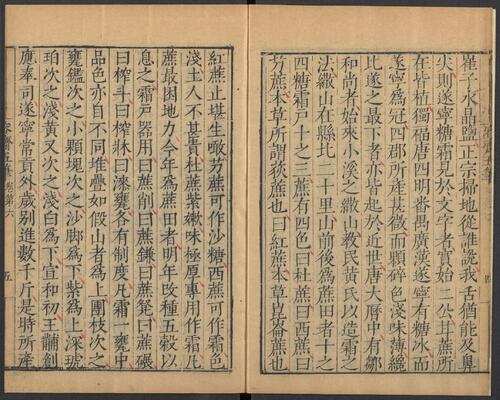 崔子水晶鹽正宗掃地從誰說我舌猶能及鼻
尖則遂寧糖霜見於文字者實始二公甘蔗所
在皆植獨福唐四明番禺廣漢遂寧有糖冰而
遂寧為冠四郡所產甚微而顆碎色淺味薄纔
比遂之最下者亦皆起於近世唐大曆中有鄒
和尚者始來小溪之繖山教民黃氏以造霜之
法繖山在縣北二十里山前後為蔗田者十之
四糖霜戶十之三蔗有四色曰杜蔗曰西蔗曰
艻蔗本草所謂荻蔗也曰紅蔗本草崑崙蔗也
紅蔗止堪生噉艻蔗可作沙糖西蔗可作霜色
淺土人不甚貴杜蔗紫嫩味極厚專用作霜凡
蔗最困地力今年為蔗田者明年改種五穀以
息之霜戶器用曰蔗削曰蔗鎌曰蔗凳曰蔗碾
曰榨斗曰榨牀曰漆甕各有制度凡霜一甕中
品色亦自不同堆疊如假山者為上團枝次之
甕鑑次之小顆塊次之沙腳為下紫為上深琥
珀次之淺黃又次之淺白為下宣和初王黼創
應奉司遂寧常貢外歲別進數千斤是時所產
容齋五筆卷第六
五